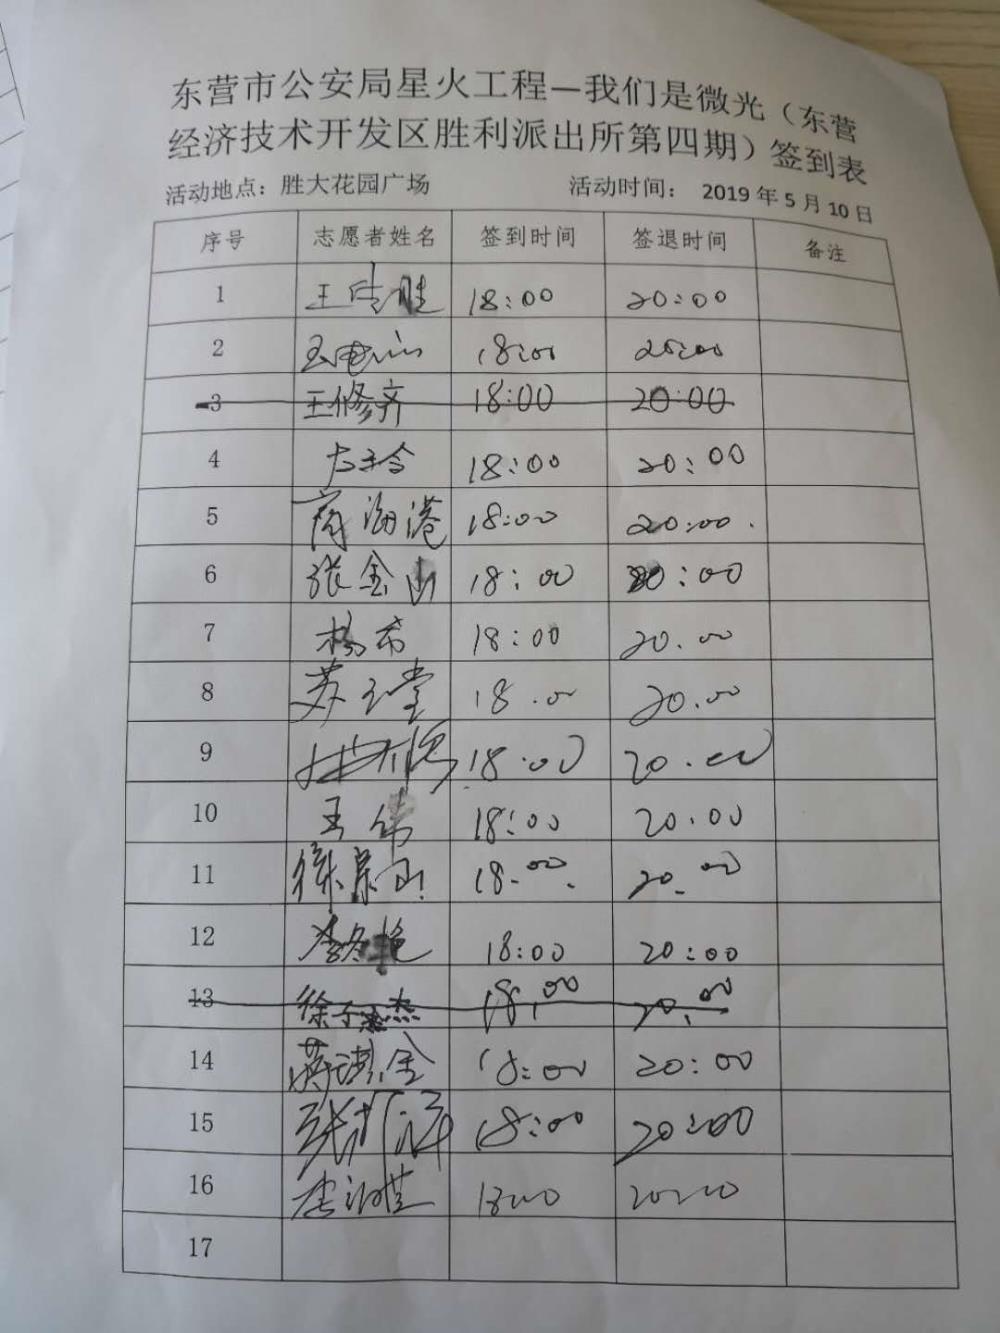 东营市公安局星火工程—我们是微光（东营
经济技术开发区胜利派出所第四期）签到表
活动地点：胜大花园广场 活动时间： 2019年5月10日
序号 志愿者姓名 签到时间 签退时间 备注
1 18:00 20:00
2 18:00 20:00
3 王修齐 18:00 20:00
4 18:00 20:00
5 商海港 18:00 20:00.
6 张金山 18:00 20:00
7 杨芳 18:00 20.00
8 苏玉堂 18.00 20.00
9 18.00 20.00
10 王伟 18:00 20.00
11 18-00. 20.00
12 李冬艳 18:00 20:00
13 徐子杰 18.00 20.00
14 18:00 20:00
15 18:00 20:00
16 18:00 20:00
17